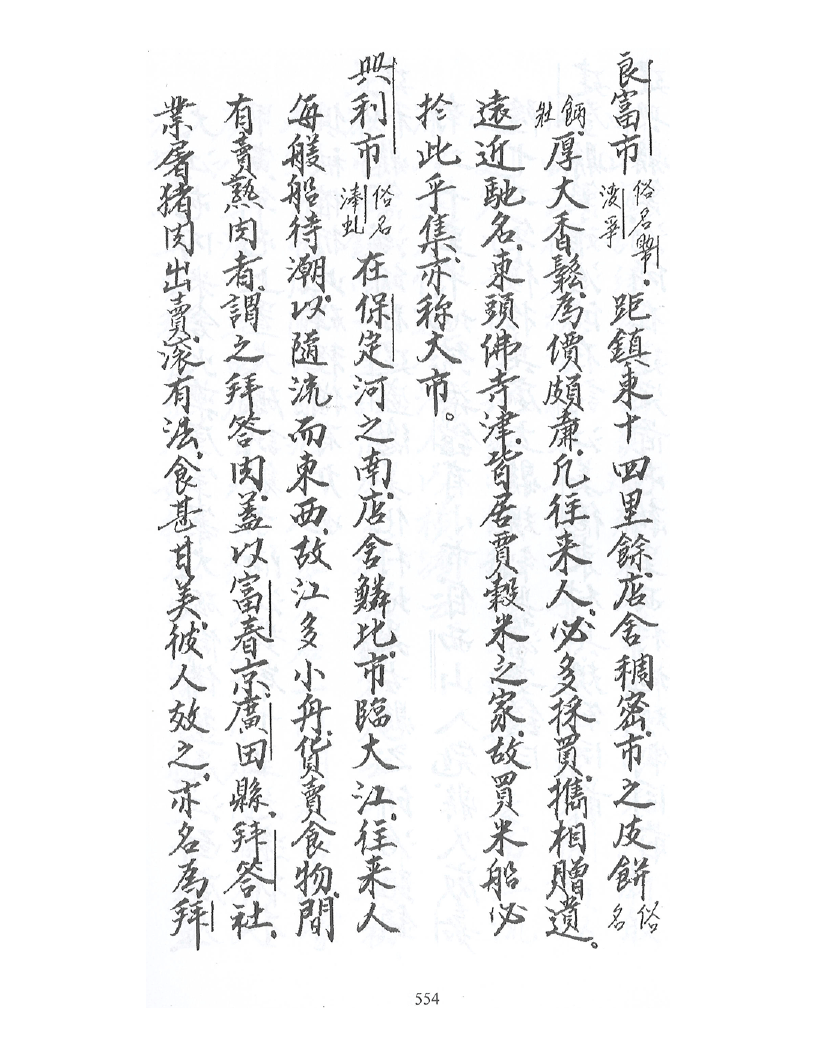 良富市俗名𨷈淩爭距鎮東十四里餘。店舍稠密。市之皮餅俗名
餅壯厚大香鬆。為價頗廉。凡往来人。必多採買。擕相贈遺。
遠近馳名。東頭佛寺津。皆居賈穀米之家。故買米船必
於此乎集。亦称大市。
興利市俗名湊虬在保定河之南。店舍鱗比市臨大江。往来人
每艤船待潮。以隨流而東西。故江多小舟。貨賣食物。間
有賣熟肉者。謂之拜答肉。蓋以富春京。廣田縣。拜答社。
業屠猪肉出賣。滾有法。食甚甘美。彼人效之。亦名為拜
554